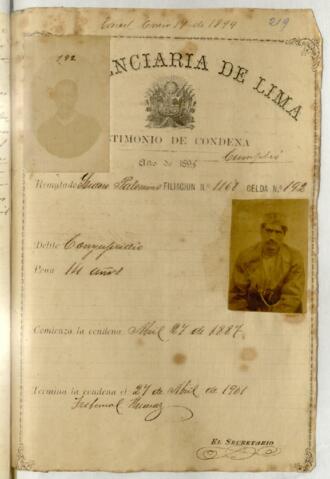 Enero 19 de 1899
219
192
ENCIARIA DE LIMA
TIMONIO DE CONDENA
Año de 1895
Cumplió
Rematado Palomino FILIACIÓN N.º 1168 CELDA N.º 192
Delito Conyugicidio
Pena 14 años
Comienza la condena Abril 27 de 1887
Termina la condena el 27 de Abril de 1901
Tribunal Huaraz
EL SECRETARIO